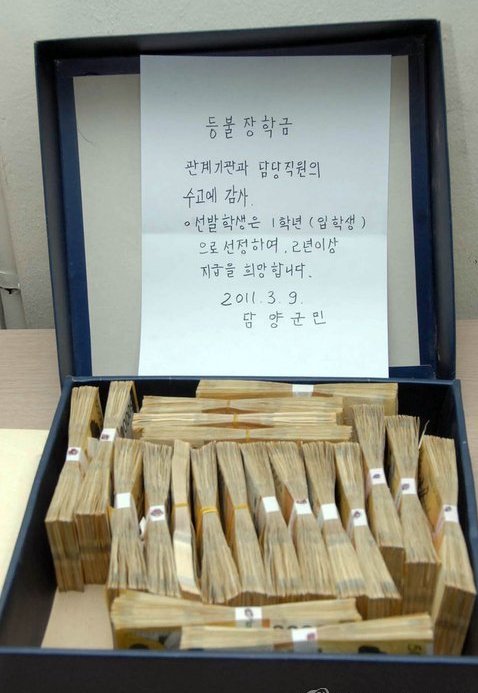 등불장학금
관계기관과 담당직원의
수고에 감사.
◦선발학생은 1학년(입학생)
으로 선정하여, 2년이상
지급을 희망합니다.
2011.3.9.
담양군민